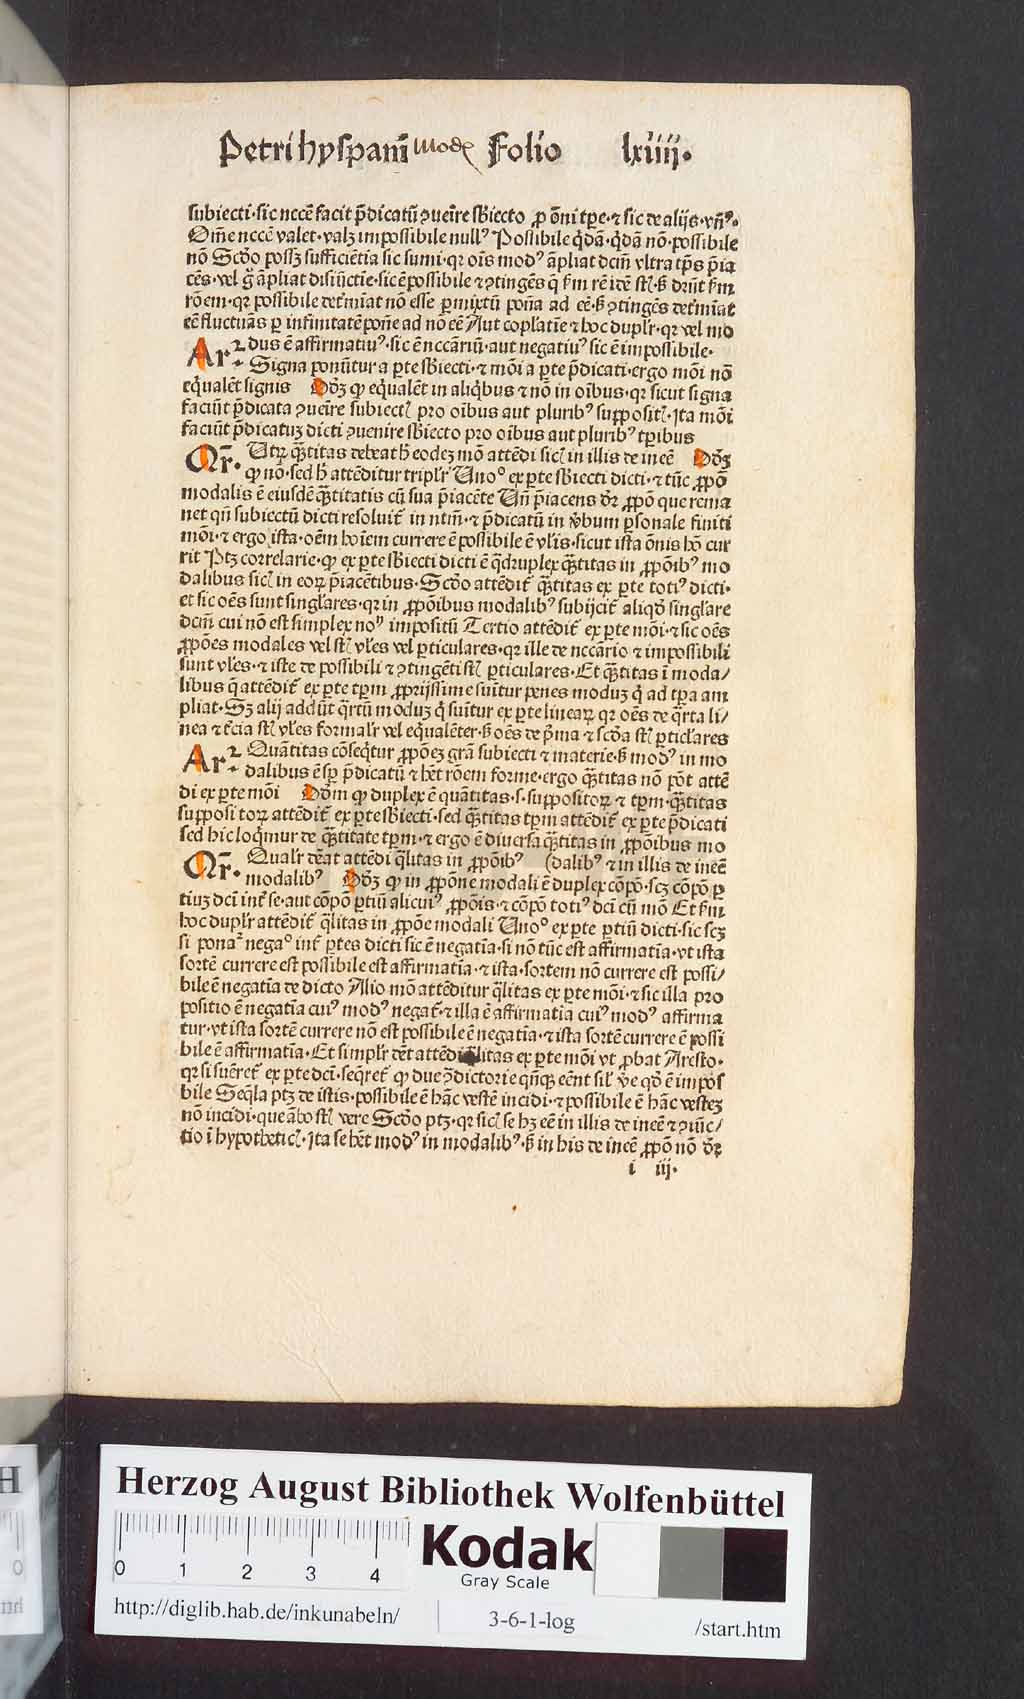 Petri hyspani Modꝝ Folio lxiiij.
subiecti·sic nccẽ facit p̃dicatũ ꝯueĩre sb̃iecto ꝓ õni tꝑe·⁊ sic de alijs·vñꝰ·
Om̃e nccẽ valet·valꝫ impossibile nullꝰ Possibile q̃dã·q̃dã nõ·possibile
nõ Scd̃o possꝫ sufficiẽtia sic sumi·qꝛ oĩs modꝰ ãpliat dcm̃ vltra tp̃s p̃ia
cẽs·vel ãpliat disiũctĩe·sic ẽ possibile ⁊ ꝯtingẽs q̃ ẜm rẽ idẽ
rõem·qꝛ possibile det̃mĩat nõ esse ꝑmixtũ poña ad eẽ·ẜ ꝯtingẽs det̃mĩat
eẽ fluctuãs ꝑ infinitatẽ poñe ad nõ eẽ Aut copl̃atĩe ⁊ hoc dupl̃r·qꝛ vel mo
Ar² dus ẽ affirmatiuꝰ·sic ẽ nccãriũ·aut negatiuꝰ sic ẽ impossibile·
Signa ponũtur a ꝑte sb̃iecti·⁊ mõi a ꝑte p̃dicati·ergo mõi nõ
eq̃ualẽt signis Dõꝫ ꝙ equalẽt in aliq̃bus ⁊ nõ in oĩbus·qꝛ sicut signa
faciũt p̃dicata ꝯueĩre subiectꝭ pro oĩbus aut pluribꝰ suppositꝭ·Jta mõi
faciũt p̃dicatuꝫ dicti ꝯuenire sb̃iecto pro oĩbus aut pluribꝰ tꝑibus
Qr̃· Utrꝫ q̃titas debeat h̃ eodeꝫ mõ attẽdi sicꝭ in illis de ineẽ Dõꝫ
ꝙ nõ·sed h̃ attẽditur tripl̃r Unoᵒ ex ꝑte sb̃iecti dicti·⁊ tũc ꝓpõ
modalis ẽ eiusdẽ q̃titatis cũ sua p̃iacẽte Uñ p̃iacens dr̃ ꝓpõ que rema
net qñ subiectũ dicti resoluit̃ in ntm̃·⁊ p̃dicatũ in v̾bum ꝑsonale finiti
mõi·⁊ ergo ista·oẽm hoĩem currere ẽ possibile ẽ vl̃is·sicut ista õnis hõ cur
rit Ptꝫ correlarie·ꝙ ex ꝑte sb̃iecti dicti ẽ q̃druplex q̃titas in ꝓpõibꝰ mo
dalibus sicꝭ in eoꝝ p̃iacẽtibus·Scd̃o attẽdit̃ q̃titas ex ꝑte totiꝰ dicti·
et sic oẽs sunt singl̃ares·qꝛ in ꝓpõibus modalibꝰ subijcit̃ aliqd̃ singl̃are
dcm̃ cui nõ est simplex noᵘ impositũ Tertio attẽdit̃ ex ꝑte mõi·⁊ sic oẽs
ꝓpões modales vel st̃ vl̃es vel ꝑticulares·qꝛ ille de nccãrio ⁊ impossibili
sunt vl̃es·⁊ iste de possibili ⁊ ꝯtingẽti st̃ ꝑticulares·Et q̃titas ĩ moda/
libus q̃ attẽdit̃ ex ꝑte tꝑm ꝓprijssime sumĩtur penes moduꝫ q̃ ad tꝑa am
pliat·Sꝫ alij addũt q̃rtũ moduꝫ q̃ sumĩtur ex ꝑte lineaꝝ qꝛ oẽs de q̃rta li/
nea ⁊ t̃cia st̃ vl̃es formal̃r vel equalẽter·ẜ oẽs de p̃ma ⁊ scd̃a st̃ ꝑticl̃ares
Ar² Quãtitas cõseq̃tur ꝓpõeꝫ grã subiecti ⁊ materie·ẜ modꝰ in mo
dalibus ẽ sꝑ p̃dicatũ ⁊ hẽt rõem forme·ergo q̃titas nõ põt attẽ
di ex ꝑte mõi Dõm ꝙ duplex ẽ quãtitas·s·suppositoꝝ ⁊ tꝑm·q̃titas
supposi toꝝ attẽdit̃ ex ꝑte sb̃iecti·sed q̃titas tꝑm attẽdit̃ ex ꝑte p̃dicati
sed hic loq̃mur de q̃titate tꝑm·⁊ ergo ẽ diuersa q̃titas in ꝓpõibus mo
Qr̃· Qual̃r dẽat attẽdi q̃litas in ꝓpõibꝰ (dalibꝰ ⁊ in illis de ineẽ
modalibꝰ Dõꝫ ꝙ in ꝓpõne modali ẽ duplex cõpõ·scꝫ cõpõ ꝑ
tiuꝫ dcĩ int̃ se·aut cõpõ ꝑtiũ alicuiꝰ ꝓpõis·⁊ cõpõ totiꝰ dcĩ cũ mõ Et ẜm
hoc dupl̃r attẽdit̃ q̃litas in ꝓpõe modali Unoᵒ ex ꝑte ꝑtiũ dicti·sic scꝫ
si ponaᷣ negaᵒ int̃ ꝑtes dicti sic ẽ negatĩa·si nõ tũc est affirmatĩa·vt ista
sortẽ currere est possibile est affirmatĩa·⁊ ista·sortem nõ currere est possi/
bile ẽ negatĩa de dicto Alio mõ attẽditur q̃litas ex ꝑte mõi·⁊ sic illa pro
positio ẽ negatĩa cuiꝰ modꝰ negat̃·⁊ illa ẽ affirmatĩa cuiꝰ modꝰ affirma
tur·vt ista sortẽ currere nõ est possibile ẽ negatĩa·⁊ ista sortẽ currere ẽ possi
bile ẽ affirmatĩa·Et simpl̃r dẽt attẽdi q̃litas ex ꝑte mõi vt ꝓbat Aresto·
qꝛ si sumẽret̃ ex ꝑte dcĩ·seq̃ret̃ ꝙ due ꝯ̃dictorie qñqꝫ eẽnt sil̃ v̾e qd̃ ẽ impos
bile Seq̃la ptꝫ de istis·possibile ẽ hãc vestẽ incidi·⁊ possibile ẽ hãc vesteꝫ
nõ incidi·que ãbo st̃ vere Scd̃o ptꝫ·qꝛ sicꝭ se hꝫ eẽ in illis de ineẽ ⁊ ꝯiũc/
tio ĩ hypotheticꝭ·Jta se hẽt modꝰ in modalibꝰ·ẜ in his de ineẽ ꝓpõ nõ dr̃
i iij·
Herzog August Bibliothek Wolfenbüttel
0 1 2 3 4
Kodak
Gray Scale
http://diglib.hab.de/inkunabeln/
3-6-1-log
/start.htm